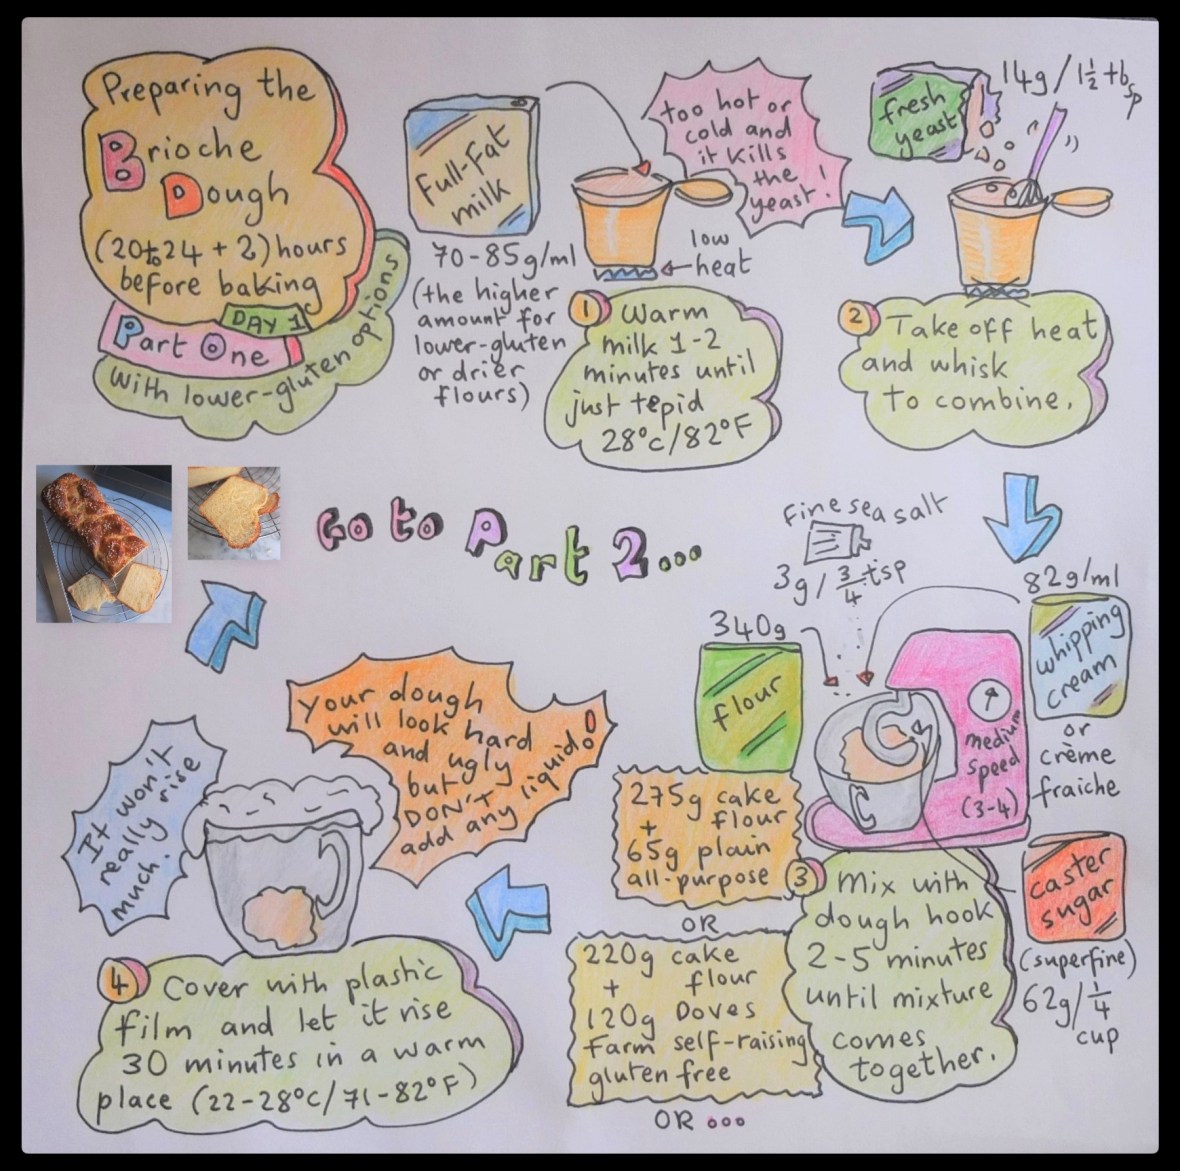 Preparing the
Brioche
Dough
(20to24 + 2) hours
before baking
DAY 1
Part One
with lower-gluten options
Full-Fat
milk
70-85g/ml
(the higher
amount for
lower-gluten
or drier
flours)
too hot or
cold and
it kills
the
yeast!
low
heat
1 Warm
milk 1-2
minutes until
just tepid
28°C/82°F
fresh
yeast
14g/1½ tbsp
2 Take off heat
and whisk
to combine.
Fine sea salt
3g/¾ tsp
82g/ml
whipping
cream
or
crème
fraiche
340g
flour
medium
speed
(3-4)
caster
sugar
(superfine)
62g/¼
cup
275g cake
+ flour
65g plain
all-purpose
OR
220g cake
+ flour
120g Doves
Farm self-raising
gluten free
OR ...
3 Mix with
dough hook
2-5 minutes
until mixture
comes
together.
Your dough
will look hard
and ugly
but
DON'T
add any liquid!
It won't
really rise
much.
4 Cover with plastic
film and let it rise
30 minutes in a warm
place (22-28°C/71-82°F)
Go to Part 2...